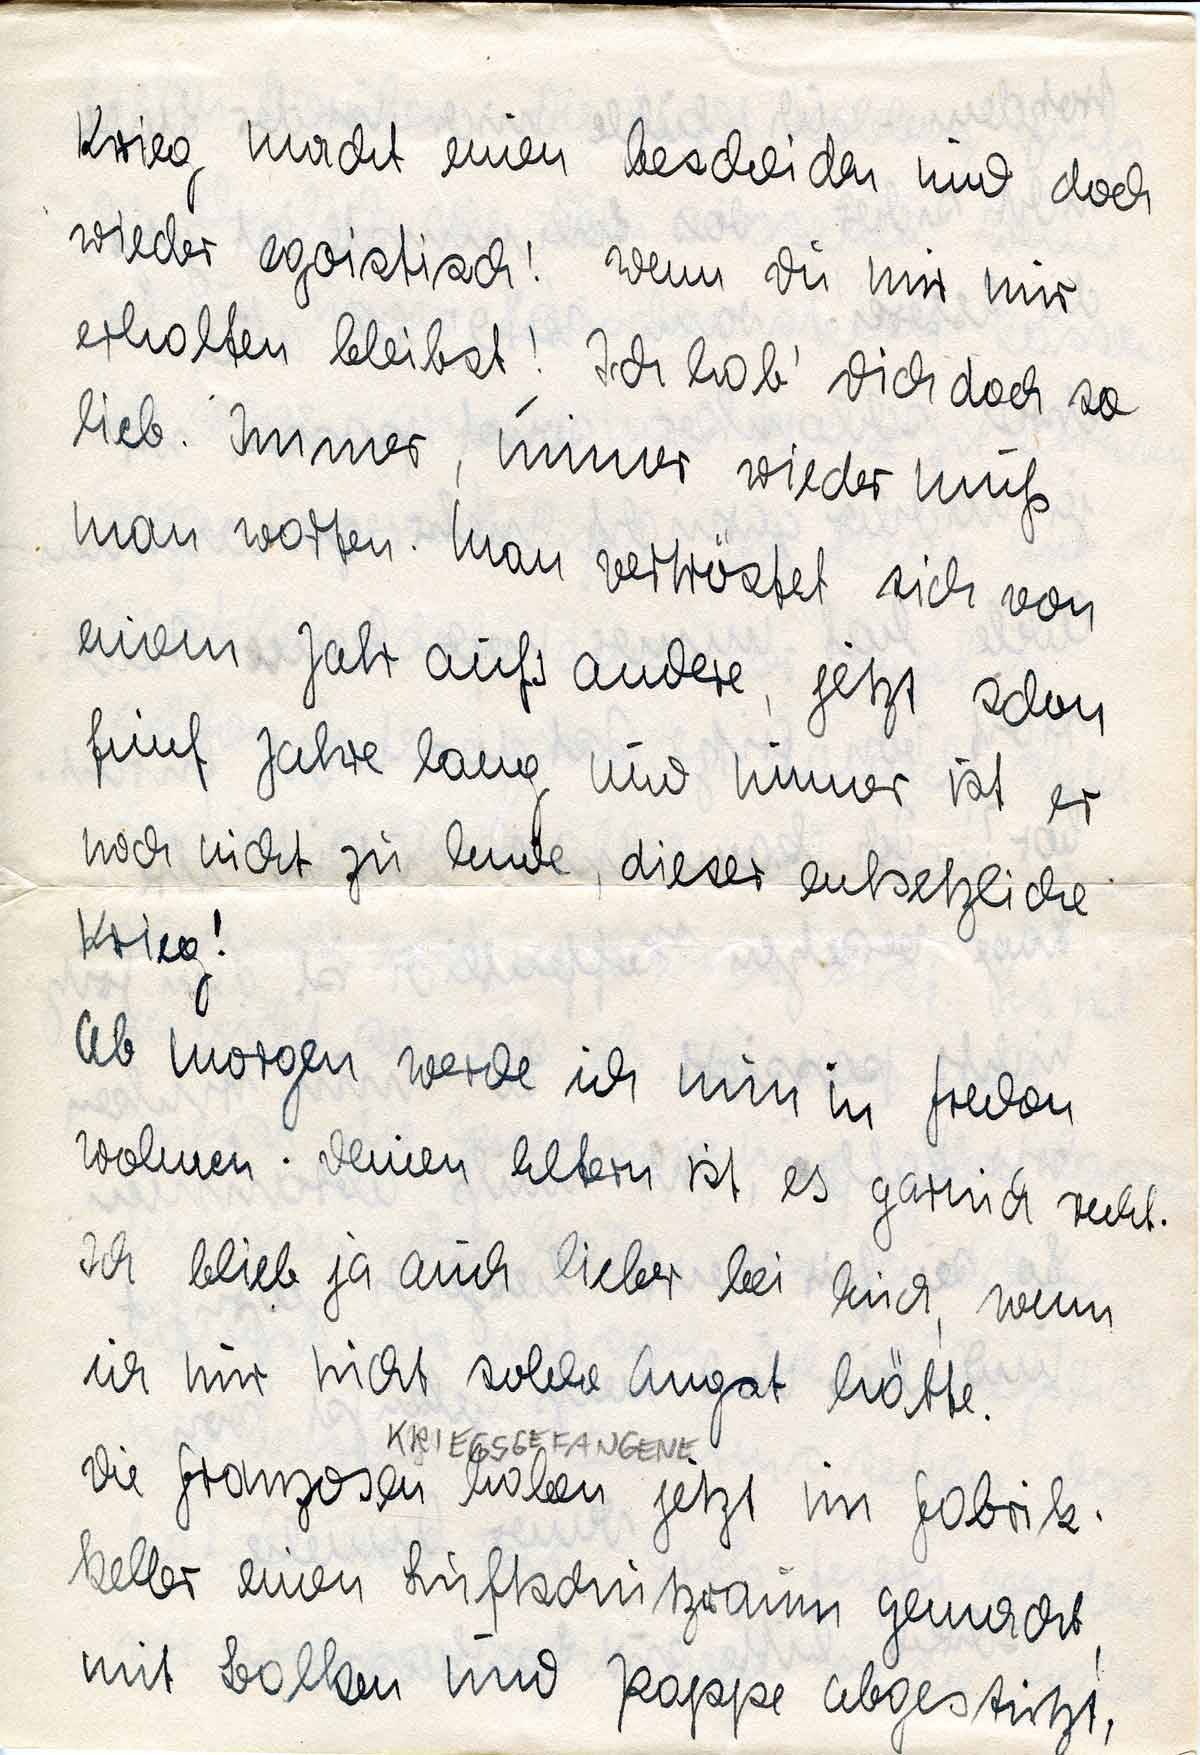 Krieg macht einen bescheiden und doch
wieder egoistisch! Wenn Du mir nur
erhalten bleibst! Ich hab' Dich doch so
lieb. Immer, immer wieder muß
man warten. Man vertröstet sich von
einem Jahr aufs andere, jetzt schon
fünf Jahre lang und immer ist er
noch nicht zu Ende, dieser entsetzliche
Krieg!
Ab morgen werde ich nun in Freden
wohnen. Deinen Eltern ist es garnich recht.
Ich blieb ja auch lieber bei Euch, wenn
ich nur nicht solche Angst hätte.
KRIEGSGEFANGENE
Die Franzosen haben jetzt im Fabrik-
keller einen Luftschutzraum gemacht,
mit Balken und Pappe abgestützt,